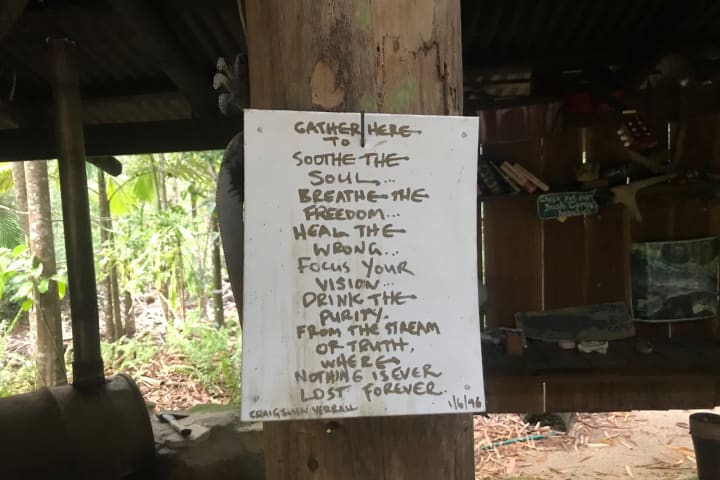 GATHER HERE
TO
SOOTHE THE
SOUL...
BREATHE THE
FREEDOM...
HEAL THE
WRONG...
FOCUS YOUR
VISION...
DRINK THE
PURITY.
FROM THE STREAM
OF TRUTH,
WHERE
NOTHING IS EVER
LOST FOREVER.
VERRALL 1/6/96
Check out our
Bush Camp